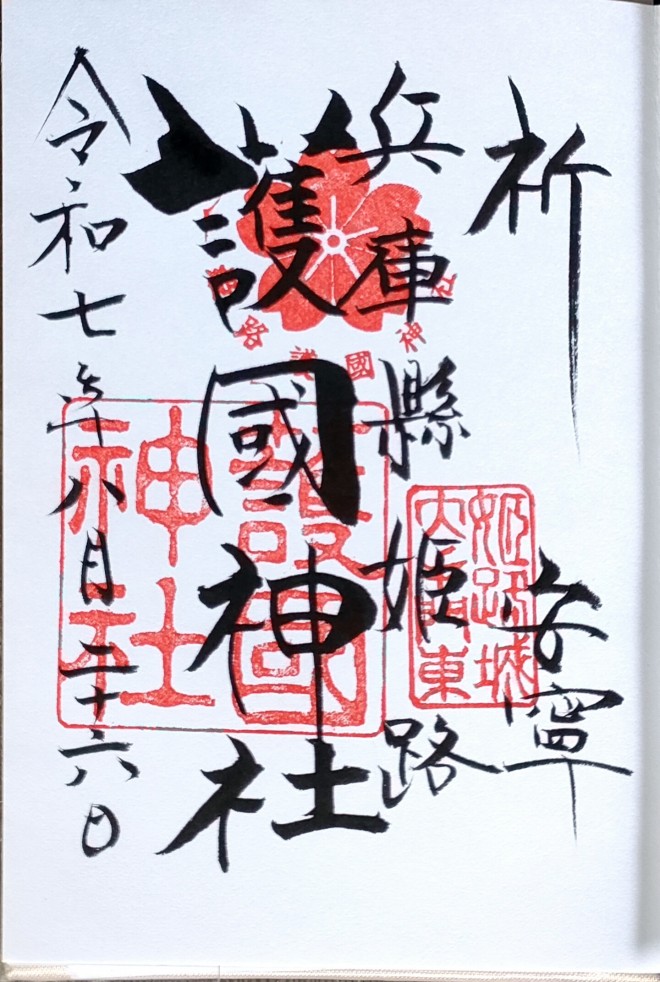 祈 安寧
兵庫縣姫路
護國神社
令和七年八月二十六日
姫路城
大手東
護國
神社
姫路護國神社